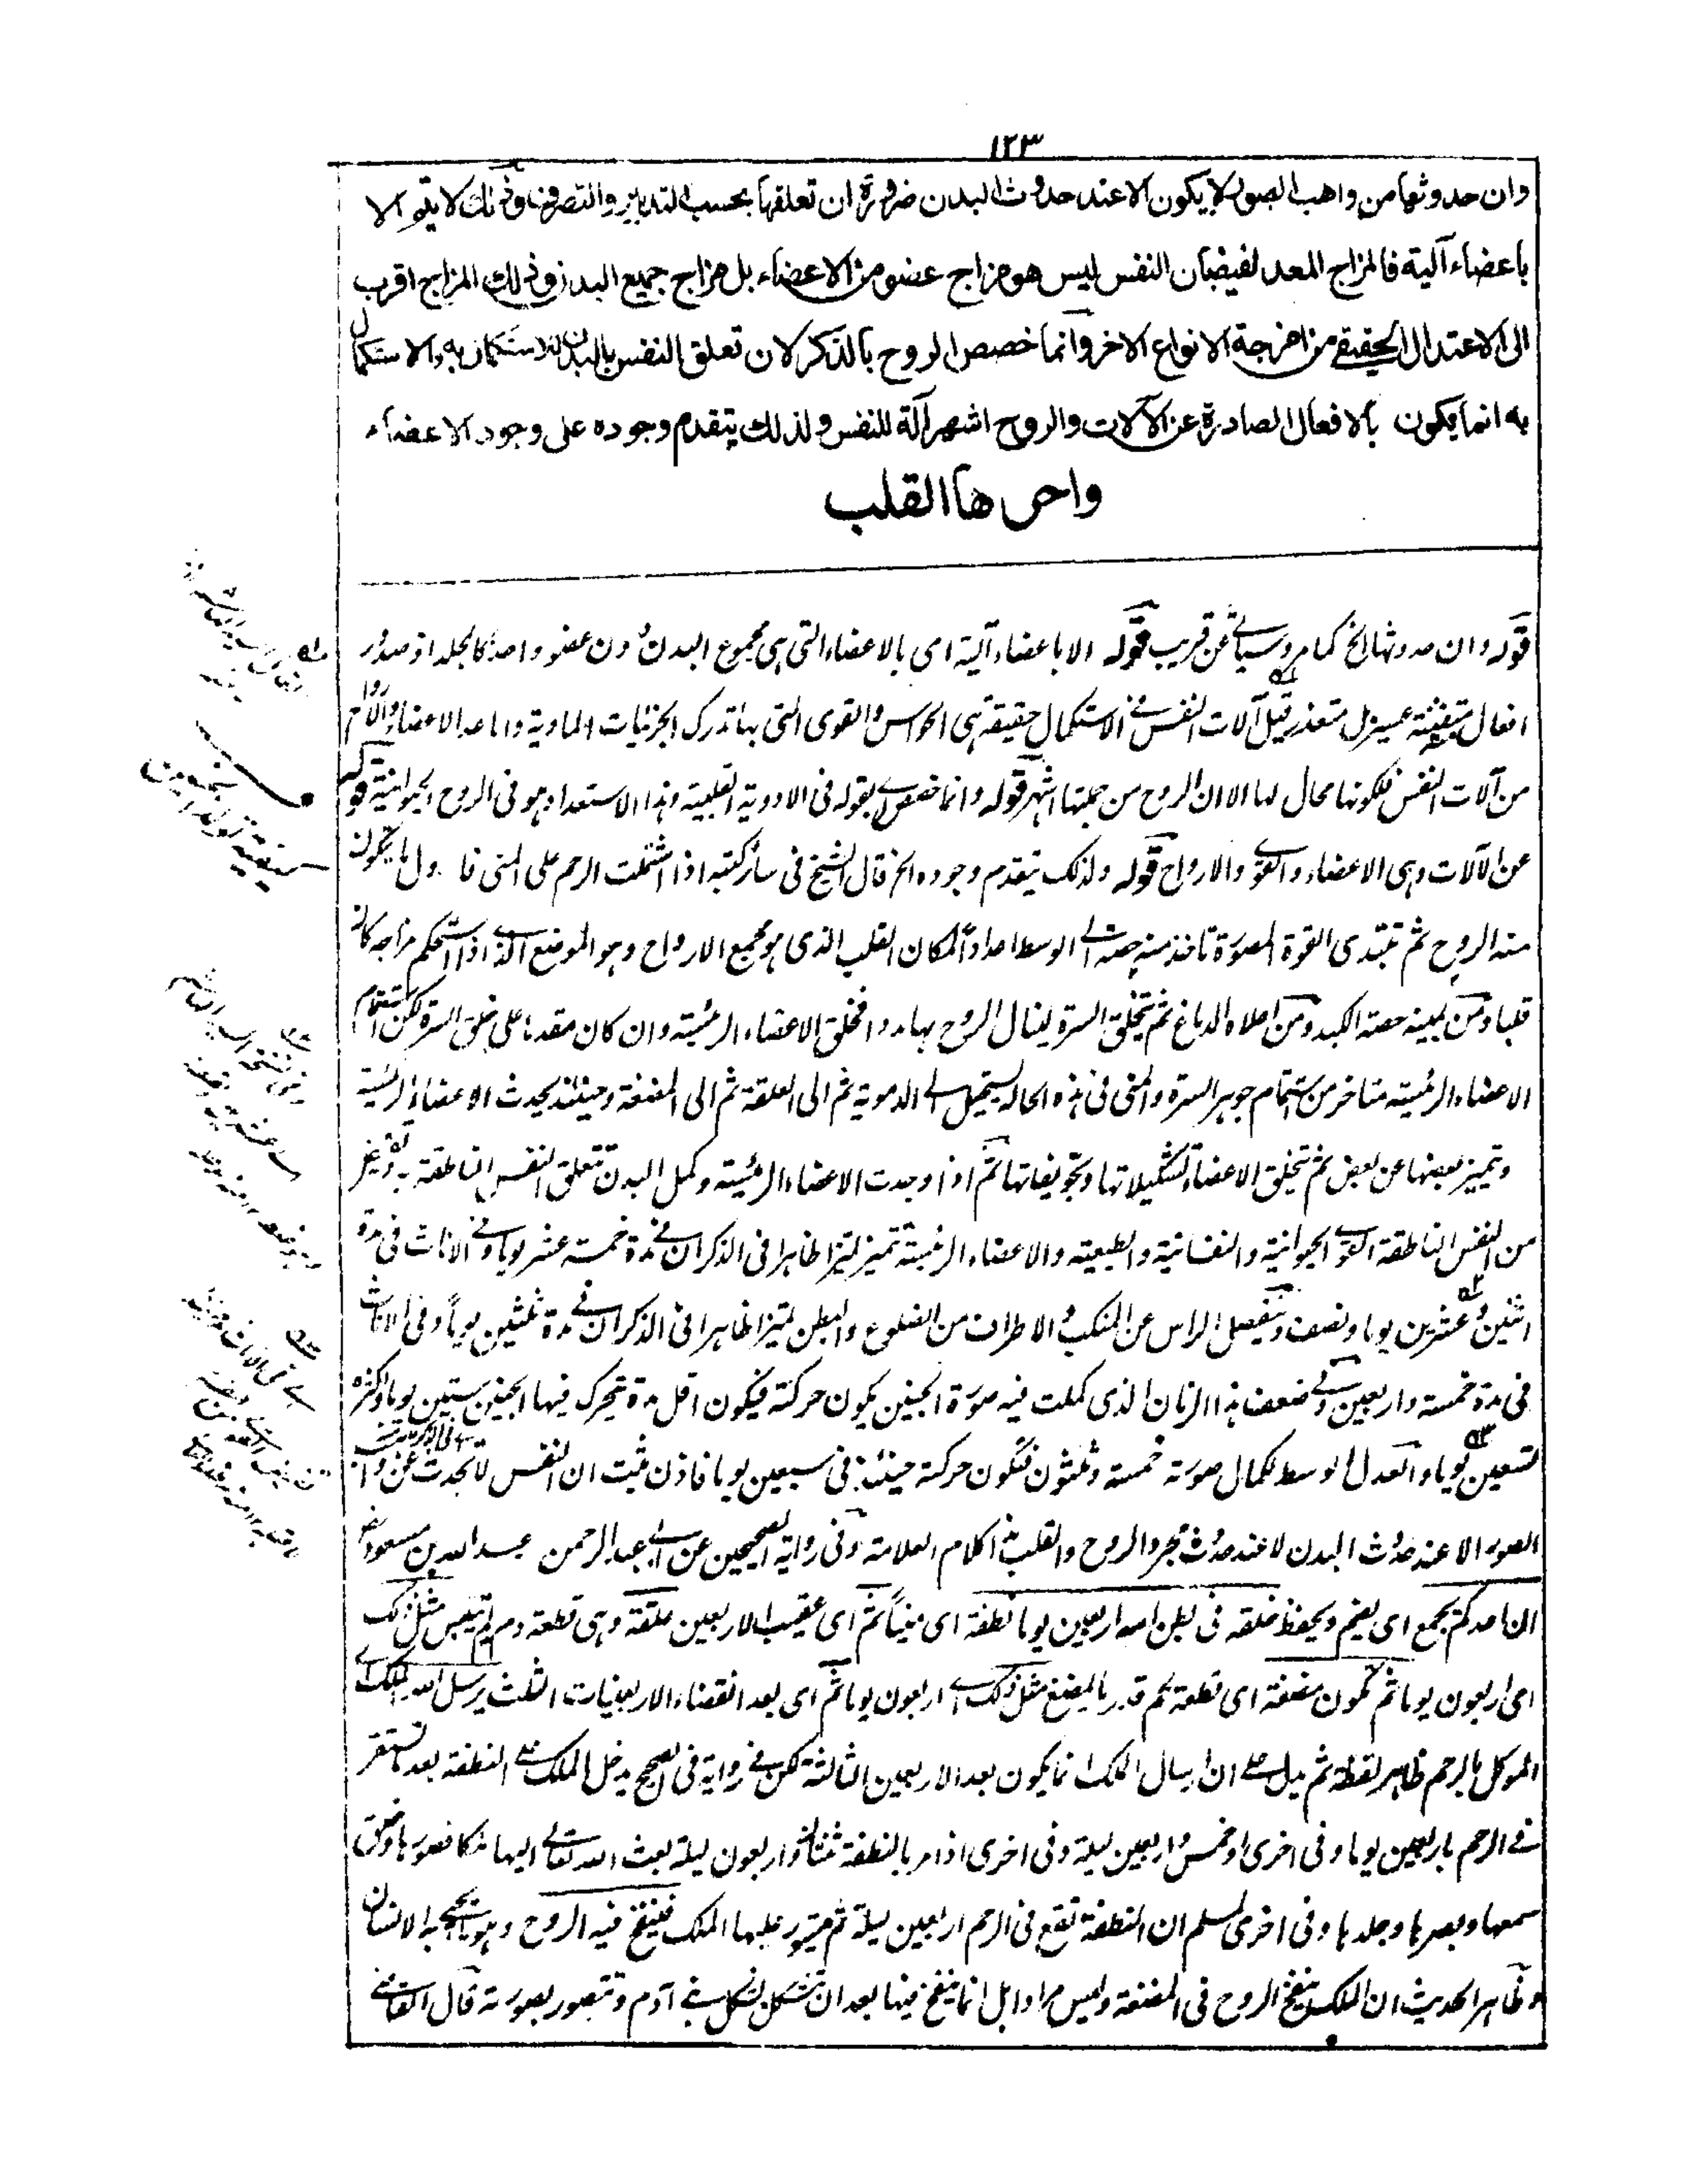 ١٢٣
وان حدوثها من واهب الصور لا يكون الا عند حدوث البدن ضرورة ان تعلقها بحسب التدبير والتصرف وذلك لا يتم الا
باعضاء آلية فالمزاج المعد لفيضان النفس ليس هو مزاج عضو من الاعضاء بل مزاج جميع البدن وذلك المزاج اقرب
الى الاعتدال الحقيقي من امزجة الانواع الاخر وانما خصص الروح بالذكر لان تعلق النفس بالبدن للاستكمال به والاستكمال
به انما يكون بالافعال الصادرة عن الآلات والروح اشهر آلة للنفس ولذلك يتقدم وجوده على وجود الاعضاء
واحرها القلب
قوله وان حدوثها الخ كما مر وسياتي عن قريب قوله الا باعضاء آلية اى بالاعضاء التى هى مجموع البدن دون عضو واحد كالجلد اذ صدور
افعال متفننة عنه متعذر قيل آلات النفس فى الاستكمال حقيقة هى الحواس والقوى التى بها تدرك الجزئيات المادية واما عد الاعضاء والارواح
من آلات النفس فلكونها محال لها الا ان الروح من جملتها اشهر قوله وانما خصص اى بقوله فى الادوية القلبية وهذا الاستعداد هو فى الروح الحيوانية قوله
عن الآلات وهى الاعضاء والقوى والارواح قوله ولذلك يتقدم وجوده الخ قال الشيخ فى سائر كتبه اذا اشتملت الرحم على المنى فاول ما يتكون
منه الروح ثم تبتدى القوة المصورة تاخذ منه حصة الى الوسط اعدادا لمكان القلب الذى هو مجمع الارواح وهو الموضع الذى اذا استحكم مزاجه كان
قلبا ومن يمينه حصة الكبد ومن اعلاه الدماغ ثم يتخلق السرة لينال الروح بها مددا فخلق الاعضاء الرئيسة وان كان مقدما على خلق السرة لكن استتمام
الاعضاء الرئيسة متاخر من استتمام جوهر السرة والمنى فى هذه الحالة يستحيل الى الدموية ثم الى العلقة ثم الى المضغة وحينئذ يحدث الاعضاء الرئيسة
ويتميز بعضها عن بعض ثم يتخلق الاعضاء بتشكيلاتها وتجويفاتها ثم اذا وجدت الاعضاء الرئيسة وكمل البدن تتعلق النفس الناطقة به
من النفس الناطقة القوى الحيوانية والنفسانية والطبيعية والاعضاء الرئيسة تتميز تميزا ظاهرا فى الذكران فى مدة خمسة عشر يوما وفى الاناث فى مدة
اثنين وعشرين يوما ونصف وينفصل الراس عن المنكب والاطراف من الضلوع والبطن تميزا ظاهرا فى الذكران فى مدة ثلثين يوما وفى الاناث
فى مدة خمسة واربعين وفى ضعف هذا الزمان الذى كملت فيه صورة الجنين يكون حركته فيكون اقل مدة يتحرك فيها الجنين ستين يوما واكثره
تسعين يوما والعدل الوسط لكمال صورته خمسة وثلثون فتكون حركته حينئذ فى سبعين يوما فاذن ثبت ان النفس لا تحدث عن واهب
الصور الا عند حدوث البدن لا عند حدوث تجرد الروح والقلب هذا كلام العلامة وفى رواية الصحيحين عن ابى عبد الرحمن عبد الله بن مسعود
ان احدكم يجمع اى يضم ويحفظ خلقه فى بطن امه اربعين يوما نطفة اى منيا ثم اى عقيب الاربعين علقة وهى قطعة دم لم تيبس مثل ذلك
اى اربعون يوما ثم تكون مضغة اى قطعة لحم قدر ما يمضغ مثل ذلك اى اربعون يوما ثم اى بعد انقضاء الاربعينيات الثلث يرسل الله الملك اى
الموكل بالرحم ظاهر لفظة ثم يدل على ان ارسال الملك انما يكون بعد الاربعين الثالثة لكن فى رواية فى الصحيح يدخل الملك على النطفة بعد ما تستقر
فى الرحم باربعين يوما وفى اخرى او خمس واربعين ليلة وفى اخرى اذا مر بالنطفة ثنتان واربعون ليلة بعث الله تعالى اليها ملكا فصورها وخلق
سمعها وبصرها وجلدها وفى اخرى لمسلم ان النطفة تقع فى الرحم اربعين ليلة ثم يتسور عليها الملك فينفخ فيه الروح وهو ما يحيى به الانسان
وظاهر الحديث ان الملك ينفخ الروح فى المضغة وليس مرادا بل انما ينفخ فيها بعد ان تتشكل بشكل بنى آدم وتتصور بصورته قال الله تعالى